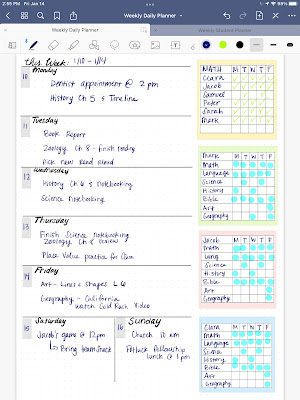 2:55 PM Fri Jan 14
Weekly Daily Planner
Weekly Daily Planner
Weekly Student Planner
this Week: 1/10 - 1/14
10
Monday
Dentist appointment @ 2 pm
History Ch 5 & Timeline
11
Tuesday
Book Report
Zoology Ch 8 - finish reading
Pick new Read Aloud
12
Wednesday
History Ch 6 & Notebooking
Science Notebooking
13
Thursday
Finish Science Notebooking
Zoology Ch 8 review
Place Value practice for
14
Friday
Art - Lines & Shapes L 6
Geography - California
Watch Gold Rush Video
15
Saturday
Jacob's game @ 12pm
Bring team snack
16
Sunday
Church 10 am
Potluck Fellowship
lunch @ 1 pm
MATH M T W T F
Clara
Jacob
Samuel
Peter
Sarah
Mark
Mark M T W T F
Math
Language
Science
History
Bible
Art
Geography
Jacob M T W T F
Math
Lang
Science
History
Bible
Art
Geography
Clara M T W T F
Math
Language
Science
History
Bible
Art
Geography